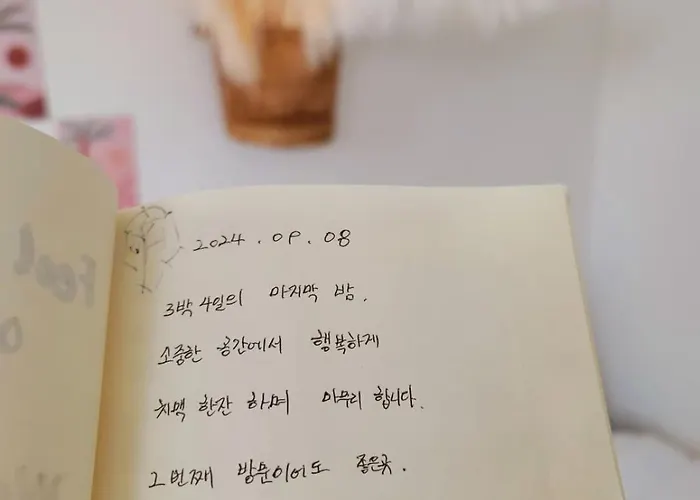 2024. 09. 08
3박 4일의 마지막 밤.
소중한 공간에서 행복하게
치맥 한잔 하며 마무리 합니다.
2번째 방문이어도 좋은곳.